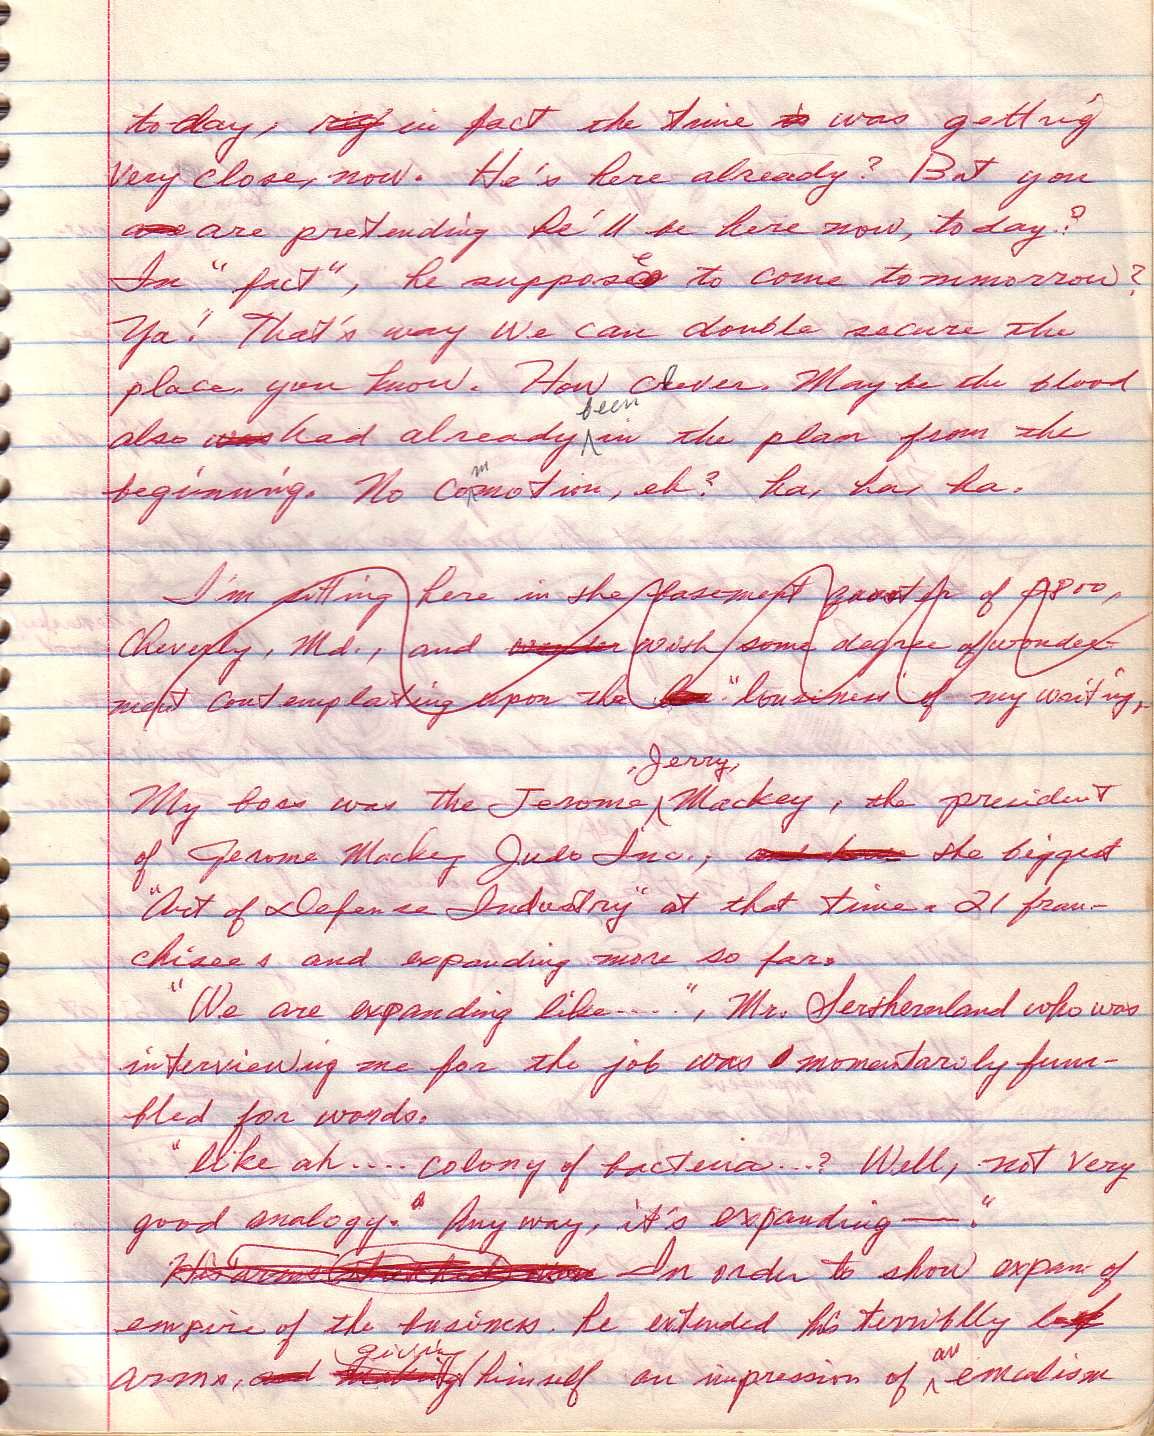 to-day, in fact the time was getting
very close, now. He's here already? But you
are pretending he'll be here now, today?
In "fact", he suppose to come tommorrow?
Ya! That's way we can double secure the
place. you know. How clever. Maybe the blood
also had already been in the plan from the
beginning. No commotion, eh? ha, ha, ha.
I'm sitting here in the basement of 1800,
Cheverly, Md., and with some degree of wonder-
ment contemplating upon the "lousiness" of my waiting,
My boss was the Jerome, Jerry, Mackey, the president
of Jerome Mackey Judo Inc., the biggest
"Art of Defense Industry" at that time. 21 fran-
chisees and expanding more so far.
"We are expanding like-----", Mr. who was
interviewing me for the job was momentaroly fum-
bled for words.
"like ah.... colony of bacteria...? Well, not very
good analogy." Any way, it's expanding——."
In order to show expan of
empire of the business. he extended his terriblly
arms, giving himself an impression of an